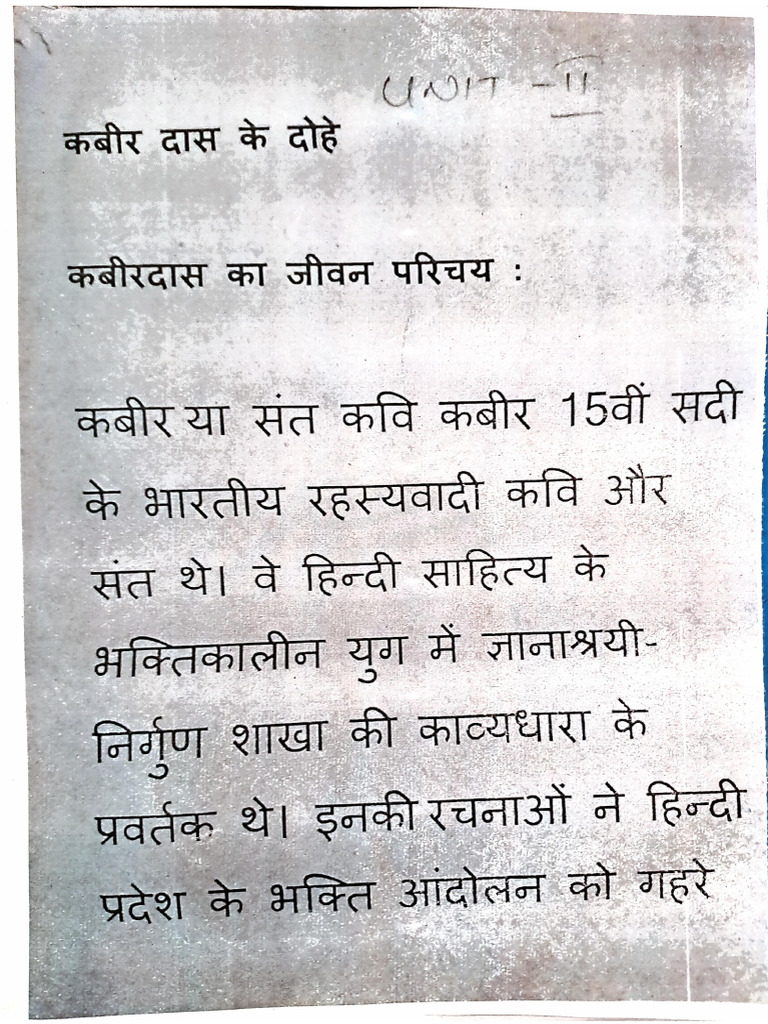 UNIT - II
कबीर दास के दोहे
कबीरदास का जीवन परिचय :
कबीर या संत कवि कबीर 15वीं सदी
के भारतीय रहस्यवादी कवि और
संत थे। वे हिन्दी साहित्य के
भक्तिकालीन युग में ज्ञानाश्रयी-
निर्गुण शाखा की काव्यधारा के
प्रवर्तक थे। इनकी रचनाओं ने हिन्दी
प्रदेश के भक्ति आंदोलन को गहरे